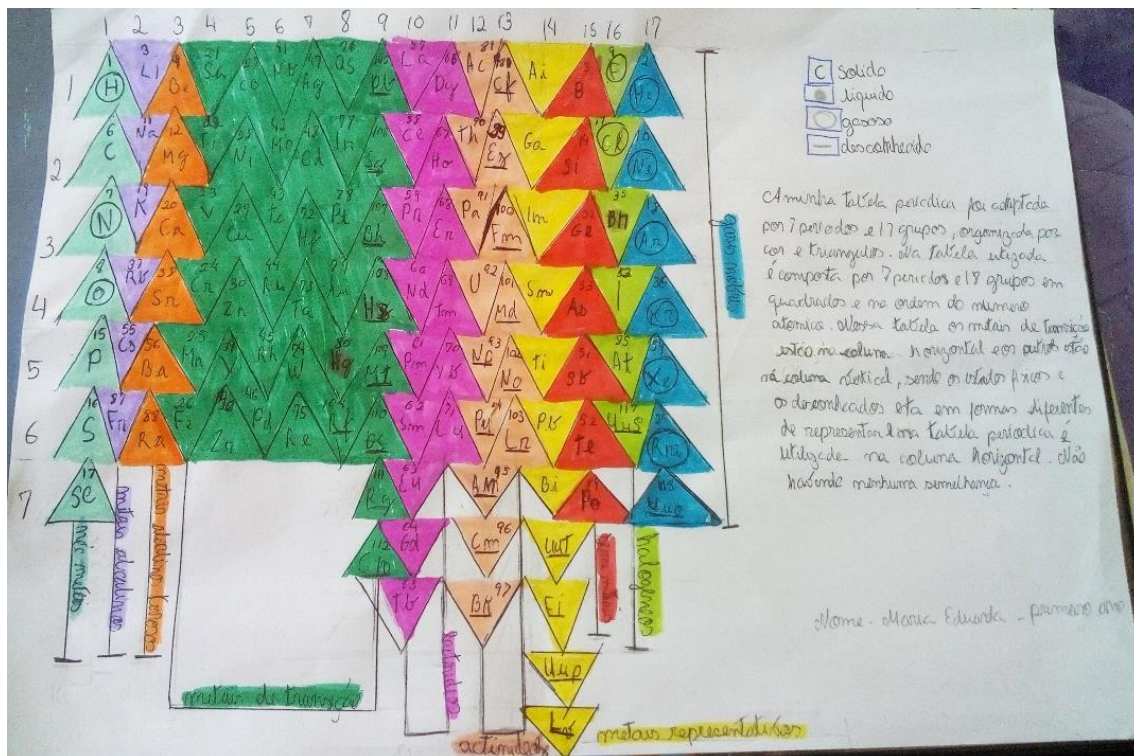 1 2 3 4 5 6 7 8 9 10 11 12 13 14 15 16 17
1
1 H
3 Li
Be
Sc
Co
Ag
Os
La
Dy
Ac
Cf
Ai
B
F
2 He
2
6 C
Na
12 Mg
Ni
Mo
Cd
Ir
Ce
67 Ho
Th
99 Es
Ga
14 Si
Cl
10 Ne
3
7 N
19 K
20 Ca
V
Cu
Tc
72 Hf
78 Pt
107 Bh
59 Pr
68 Er
91 Pa
100 Fm
In
32 Ge
35 Br
Ar
4
8 O
37 Rb
Sr
24 Cr
30 Zn
44 Ru
Hs
60 Nd
69 Tm
92 U
101 Md
Sn
33 As
I
Kr
5
15 P
55 Cs
56 Ba
25 Mn
Rh
Hg
Mt
61 Pm
70 Yb
Np
102 No
Ti
51 Sb
85 At
Xe
6
16 S
87 Fr
88 Ra
26 Fe
Zr
Pd
75 Re
Sm
71 Lu
Pu
103 Lr
Pb
52 Te
117 Uus
Rn
7
17 Se
111 Rg
63 Eu
95 Am
Bi
Po
118 Uuo
112 Cn
64 Gd
Cm 96
Uut
65 Tb
BK 97
Ei
Uup
Lv
não metais
metais alcalinos
metais alcalino terrosos
metais de transição
lantanídeos
actinideos
metais representativos
semi metais
halogeneos
gases nobres
C solido
liquido
gasoso
desconhecido
A minha tabela periodica foi adaptada
por 7 periodos e 17 grupos, organizada por
cor e triangulos. Na tabela utilizada
é composta por 7 periodos e 18 grupos em
quadrados e na ordem do numero
atomico. Nessa tabela os metais de transição
estão na coluna horizontal e os outros estão
na coluna vertical, sendo os estados fisicos e
os desconhecidos esta em formas diferentes
de representar. Uma tabela periodica é
utilizada na coluna horizontal. Não
havendo nenhuma semelhança.
Nome - Maria Eduarda - primeiro ano